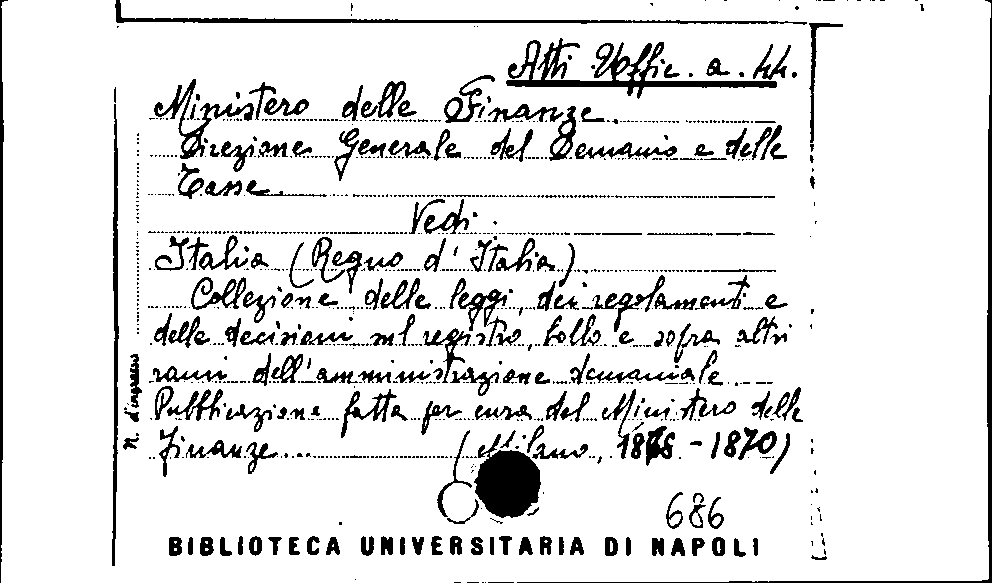 Atti Uffic. a. 44.
Ministero delle Finanze.
Direzione Generale del Demanio e delle
Tasse.
Vedi.
Italia (Regno d'Italia)
Collezione delle leggi, dei regolamenti e
delle decisioni sul registro, bollo e sopra altri
rami dell'amministrazione demaniale
Pubblicazione fatta per cura del Ministero delle
Finanze... (Milano, -1870)
N. d'ingresso
686
BIBLIOTECA UNIVERSITARIA DI NAPOLI